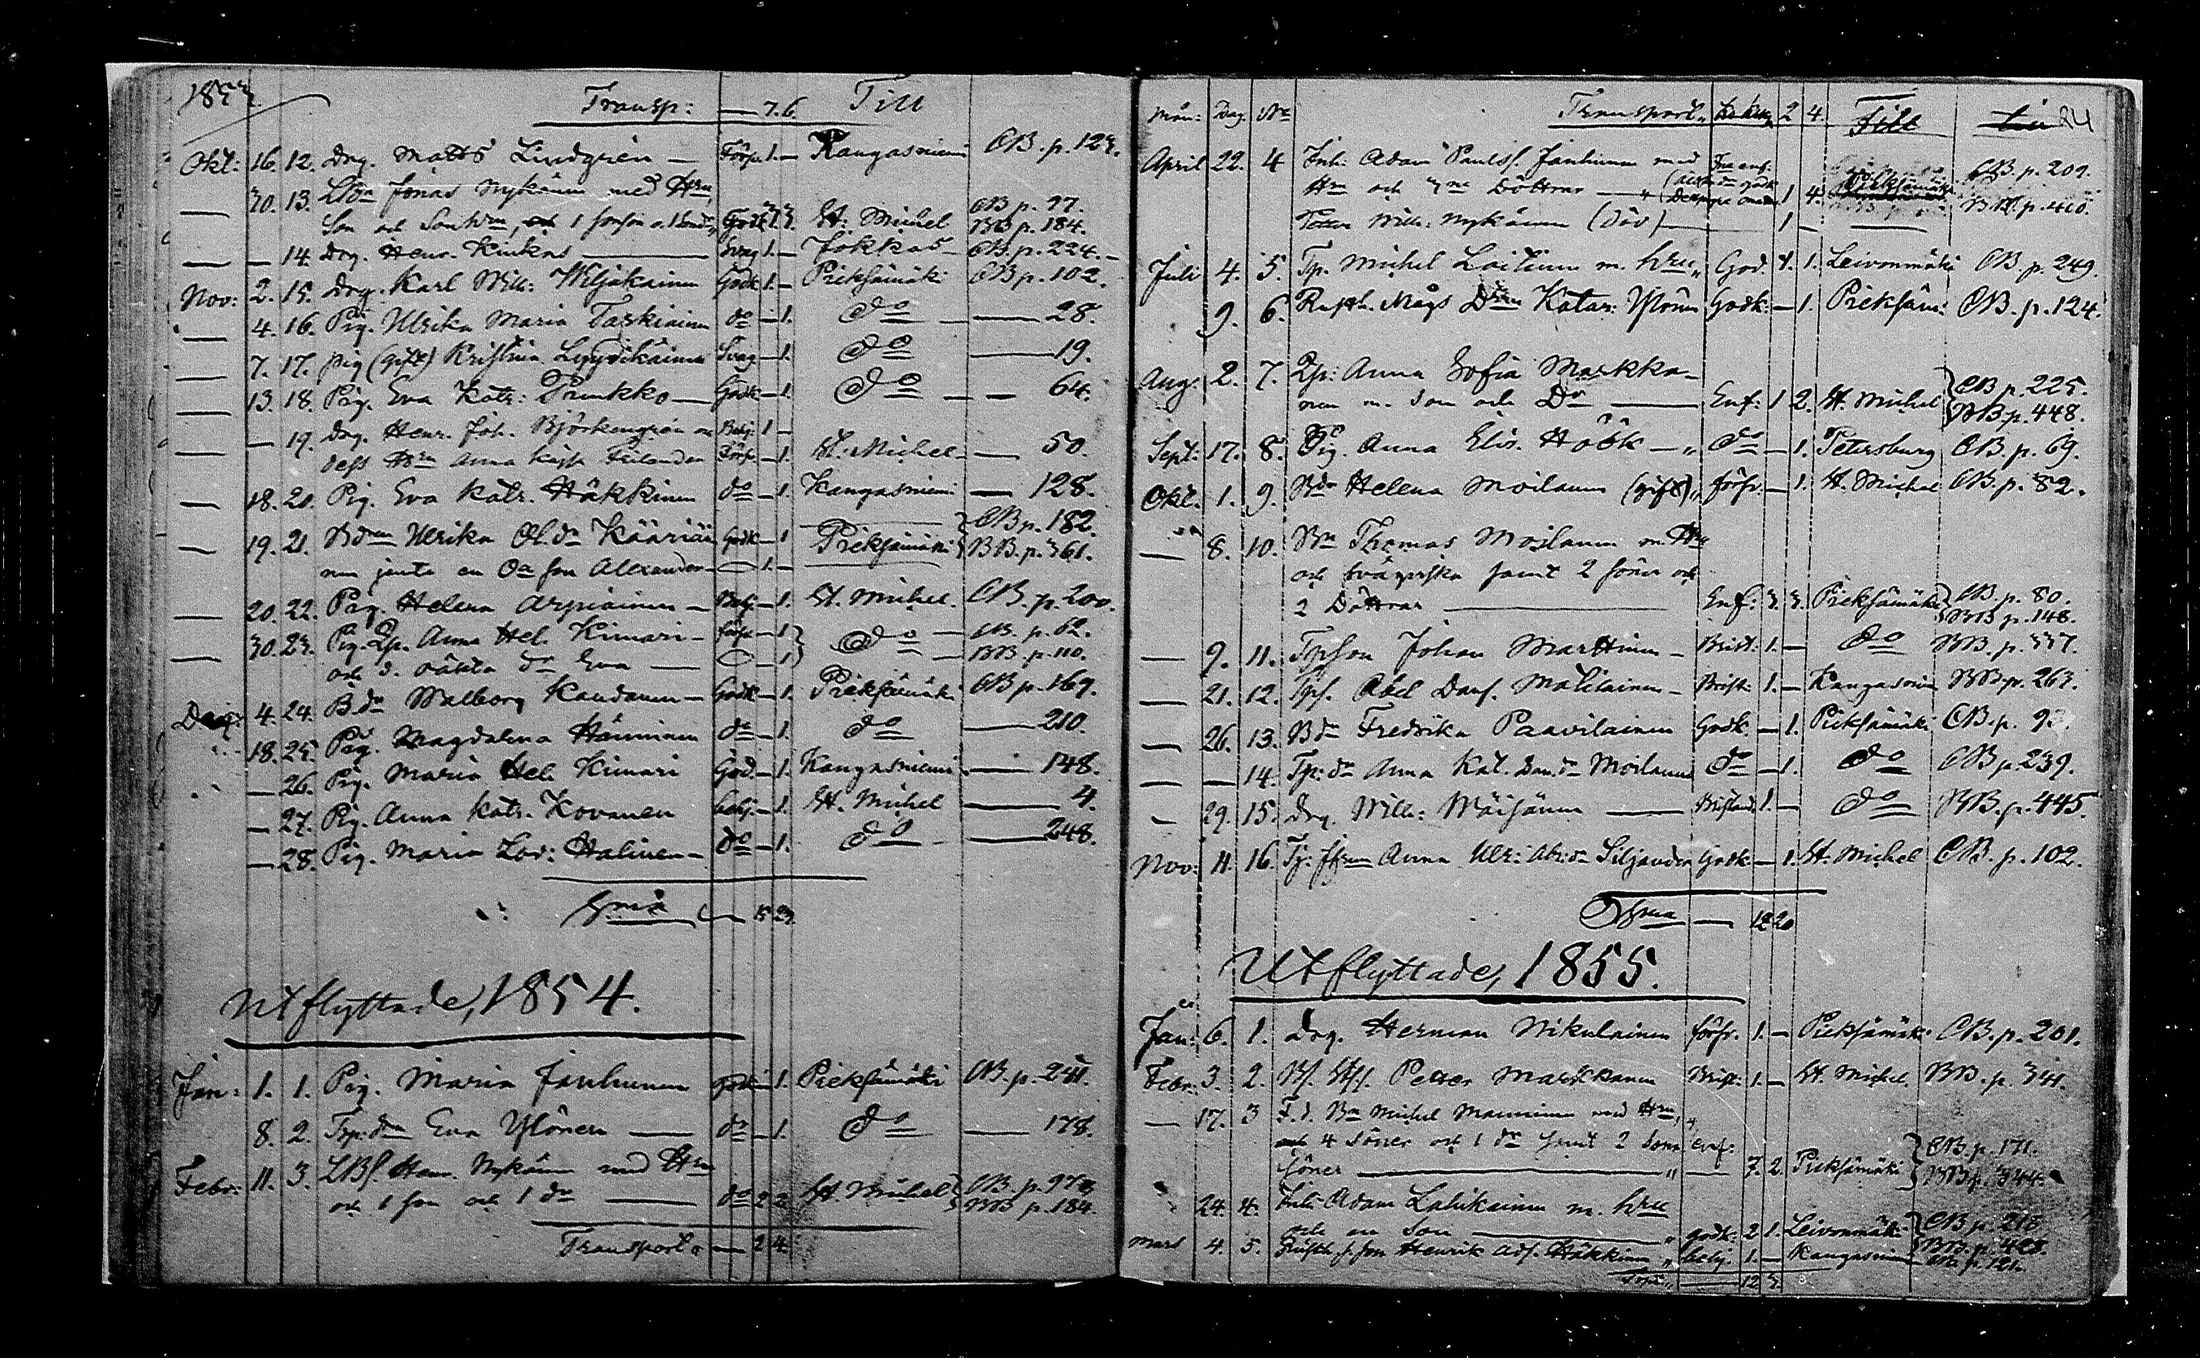 1853.
Transp: — 7. 6. Till
Okt: 16. 12. Drg. Matts Lindgrén — Förs. 1. — Kangasniemi CB. p. 123.
— 30. 13. LBn Jonas Nykänen med Hru,
Son och Sonhru, 1 sonson o. 1 Godk St. Michel CB p. 97.
BB p. 184.
— — 14. Drg. Henr. Kinkas — Svag 1. — Jokkas — CB. p. 224. —
Nov: 2. 15. Drg. Karl Wilh: Wiljakainen Godk 1. — Pieksämäki CB p. 102.
— 4. 16. Pig. Ulrika Maria Taskinen do — 1. do — 28.
— 7. 17. Pig (gift) Kristina Lyydikäinen Svag — 1. do — 19.
— 13. 18. Pig. Eva Katr: Punkko — Godk — 1. do — — 64.
— — 19. Drg. Henr. Joh. Björkengrén m Behj. 1 —
dess Hru Anna Kajsa Förs. — 1. St. Michel — 50.
— 18. 20. Pig. Eva Katr. Häkkinen do — 1. Kangasniemi — 128.
— 19. 21. Bdn Ulrika Ol. dr Kääriäi Godk — 1 Pieksämäki CB p. 182
nen jemte en Oä son Alexander — 1. — BB. p. 361.
— 20. 22. Pig. Helena Arpiainen — Behj. — 1. St. Michel. CB. p. 200.
— 30. 23. Pig. Anna Hel. Kinari — förs. — 1 do — CB. p. 62.
och d. oäkta dr Eva — — 1 — BB. p. 110.
Dec: 4. 24. B. dr Walborg Kaudanen — Godk — 1. Pieksämäki CB p. 169.
18. 25. Pig. Magdalena Hänninen do — 1. do — 210.
— 26. Pig. Maria Hel. Kinari God. — 1. Kangasniemi — 148.
— 27. Pig. Anna Katr. Kovanen behj. — 1. St. Michel — 4.
— 28. Pig. Maria Lov: Halinen — do — 1. do — 248.
Sma — 15 23.
Utflyttade, 1854.
Jan: 1. 1. Pig. Maria Janhunen Godk — 1. Pieksämäki CB. p. 241.
8. 2. Tsp: dr Eva Ylönen — do — 1. do — 178.
Febr: 11. 3. LBs. Nykänen med Hru
och 1 son och 1 dr — do 2 2. St. Michel CB p. 97
BB p. 184.
Transport — 2 4.
Mån: Dag. No Transport 2 4. Till 24
April 22. 4 Inh: Adam Paulss. Janhunen med
Hru och 3ne Döttrar — 1 4. Pieksämäki CB. p. 209.
Wilh: Nykänen (döv) — 1 — BB. p. 410.
Juli 4. 5. Tp. Michel Laitinen m. hru God. 1. 1. Leivonmäki CB p. 249.
9. 6. Rusth. Mågs Katar: Ylönen Godk: — 1. Pieksäm: CB. p. 124.
Aug. 2. 7. Anna Sofia Markka-
nen m. Son och Dr — Enf: 1 2. St. Michel CB p. 225.
BB p. 448.
Sept: 17. 8. Pig. Anna Elis. Höök — do — 1. Petersburg CB. p. 69.
Okt: 1. 9. Bdr Helena Moilanen (gift) förs. — 1. St. Michel CB. p. 82.
— 8. 10. Bn Thomas Moilanen m. Hru
och svägerska samt 2 söner och
2 Döttrar — Enf: 3. 3. Pieksämäki CB. p. 80.
BB p. 148.
— 9. 11. Tpson Johan Marttinen — Brist: 1. — do BB. p. 337.
— 21. 12. Tps. Abel Dans. Matilainen — Brist: 1. — Kangasniem BB p. 263.
— 26. 13. Bdr Fredrika Paavilainen Godk. — 1. Pieksämäki CB. p.
— — 14. Tp: dr Anna Kat. Dan. dr Moilanen do — 1. do CB p. 239.
— 29. 15. Drg. Wilh: Väisänen — Bristande 1. — do BB. p. 445.
Nov: 11. 16. Anna Ulr: Abr: dr Siljander Godk — 1. St. Michel CB. p. 102.
Sma — 12 20
Utflyttade, 1855.
Jan: 6. 1. Drg. Herman Nikulainen förs. 1. — Pieksämäki CB. p. 201.
Febr: 3. 2. Petter Markkanen Brist: 1. — St. Michel BB. p. 341.
— 17. 3 F. d. Bn Michel Manninen med Hru,
och 4 söner och 1 dr samt 2 Sona enf:
söner — 7. 2. Pieksämäki CB. p. 171.
BB p. 344.
24. 4. Inh: Adam Lahikainen m. hru
och en Son — godk: 2 1. Leivonmäki CB p. 218
Mars 4. 5. Henrik Ads. Häkkinen behj. 1. — Kangasniemi p. 121.
12 3.